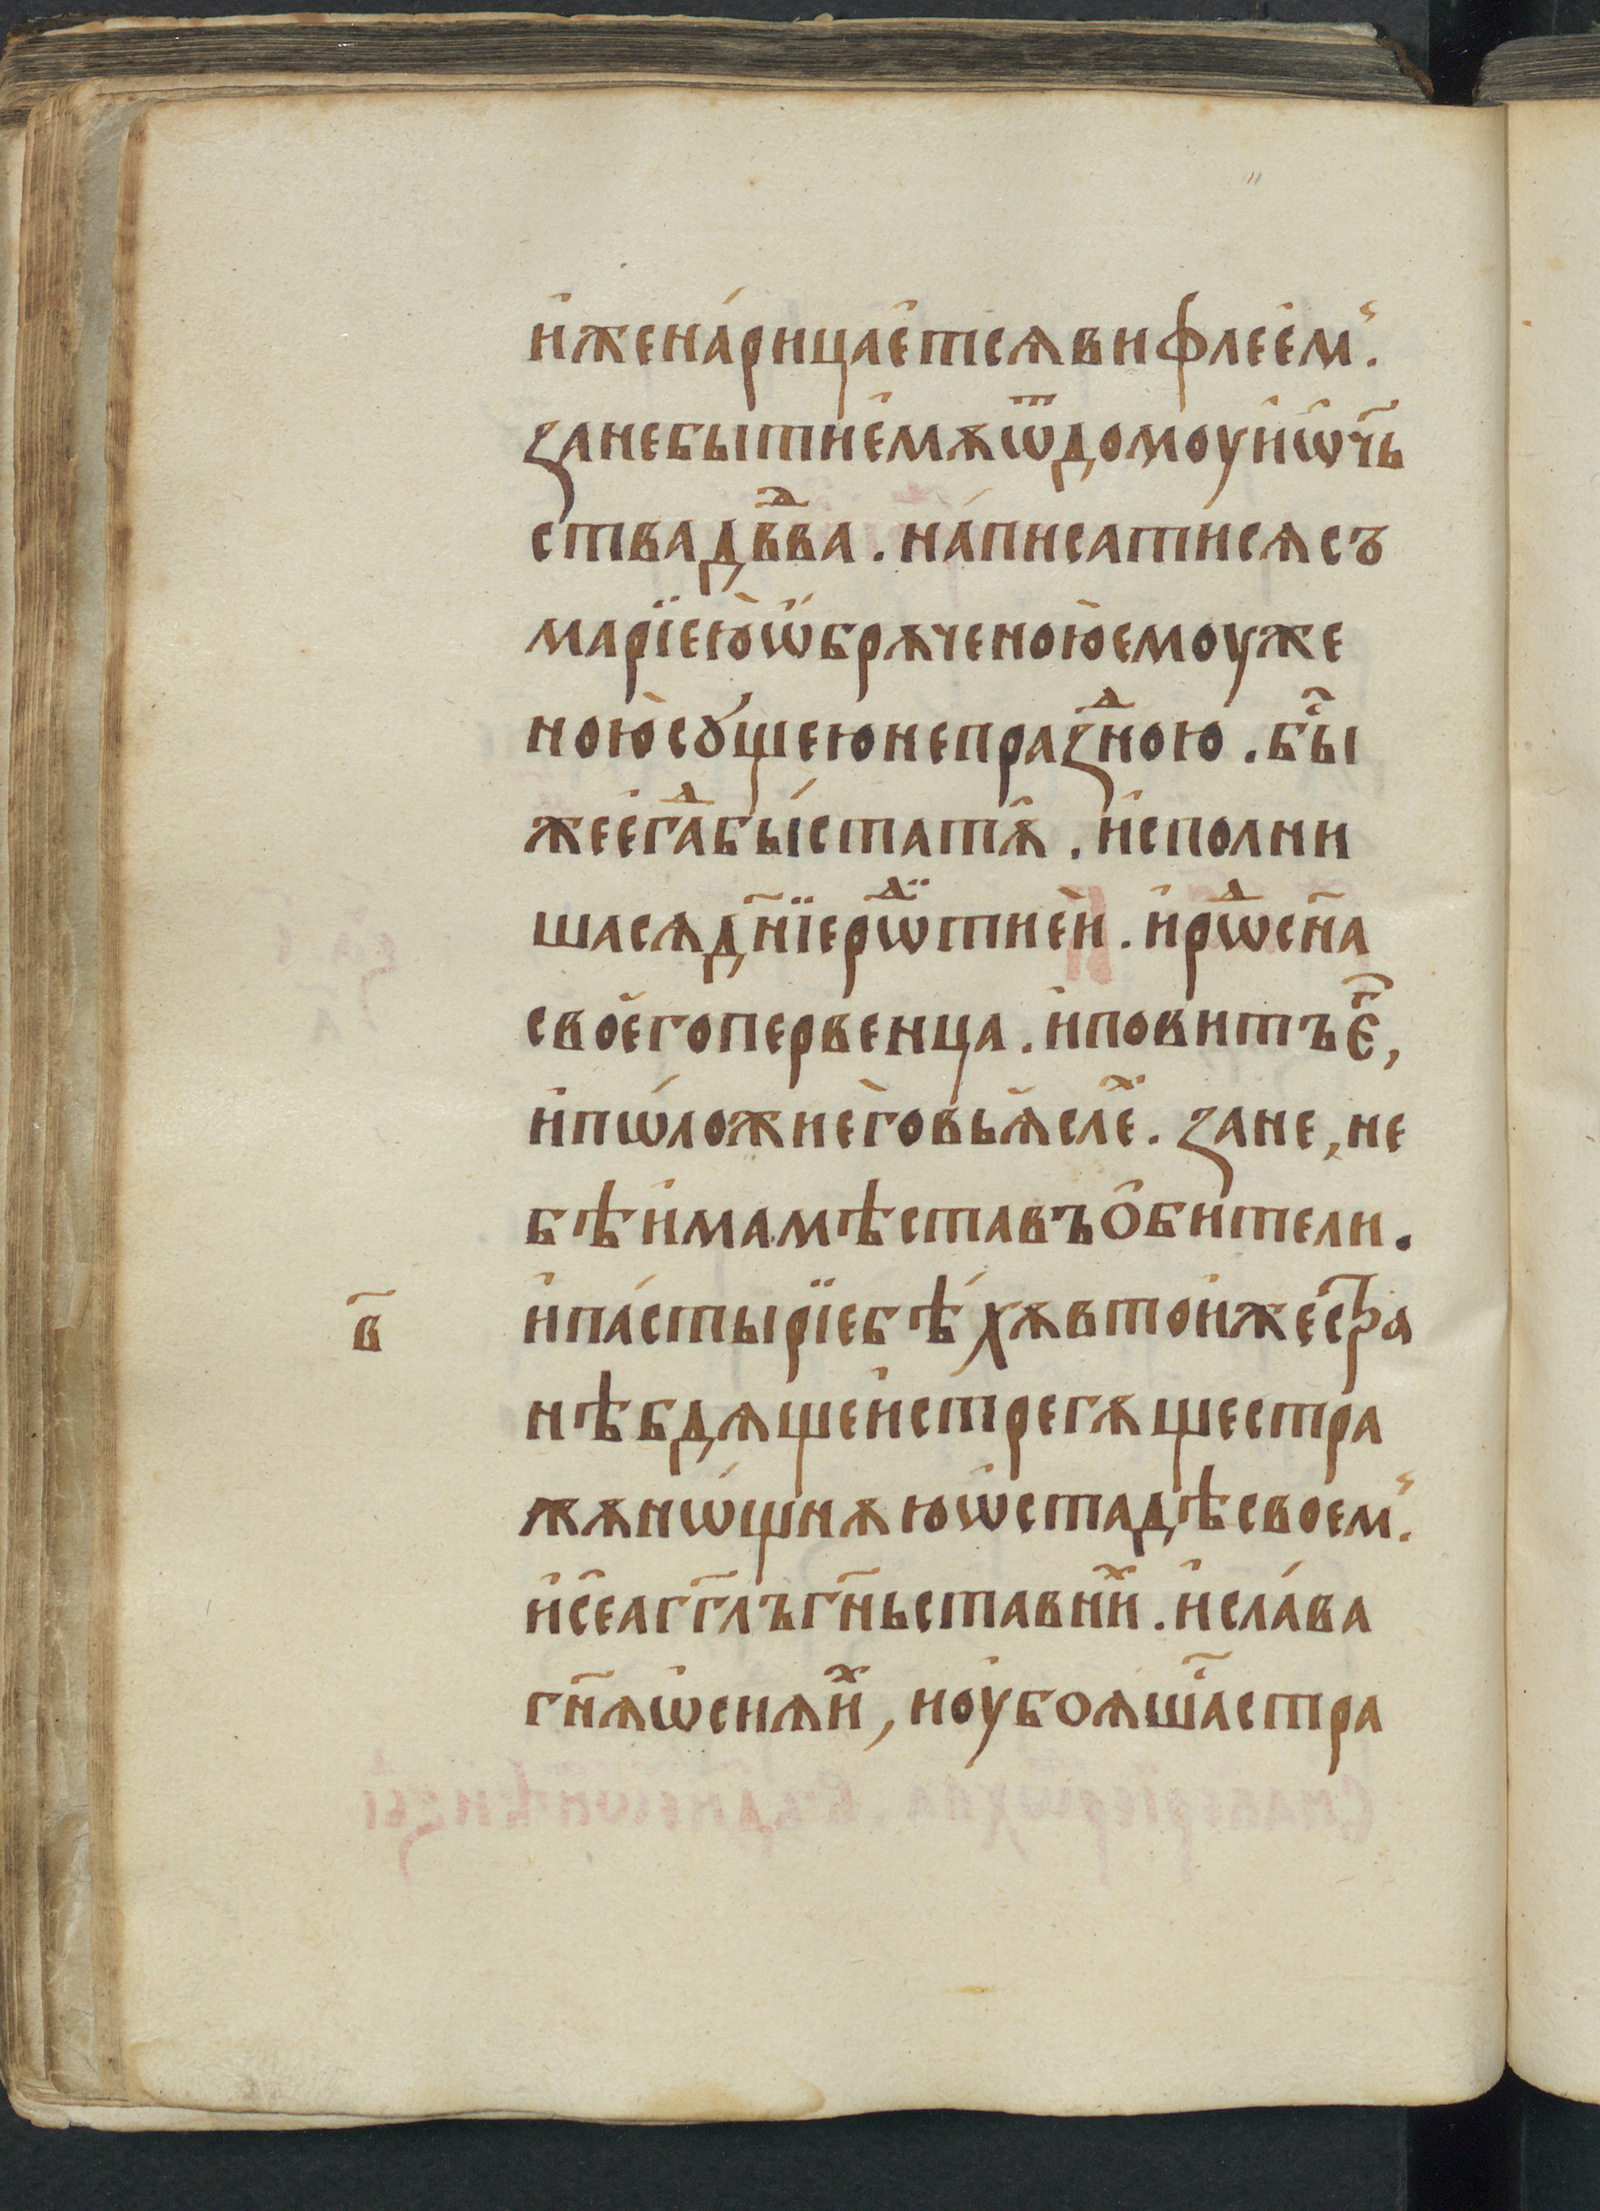 и҆жена́рицае҆тсѧвифлее҆м꙽.
занебытие҆мѫѿдомоуи҆ѡ҆ч҃ь
ствадв҃ⷣва . на́писатисѧсъ
марїею̀ѡ҆брѫченою̀емоуже
ною̀сꙋ́щеюнепразⷣною . бы҇
жеегⷣабы́статѫ̑ . и҆сполни
шасѧдн҃їерѡⷣтиѐи . и҆рѡⷣсн҃а
своегопервенца . и҆повитъе҆г҃,
и҆пѡ́ложиѐговьꙗ҆слеⷯ . зане , не
бѣи҆мамѣставъо҆бители .
в҃ и҆па́стырїебѣ́хѫвтои҆жестра
нѣбдѧщеи҆стрегѫщестра
жѫнѡ́щнѫюѡ҆стадѣсвоем꙽.
и҆се҆агг҃лъгн҃ьставниⷯ . и҆сла́ва
гн҃ѧѡ҆сиѧиⷯ , иоу҆боѧша҇стра